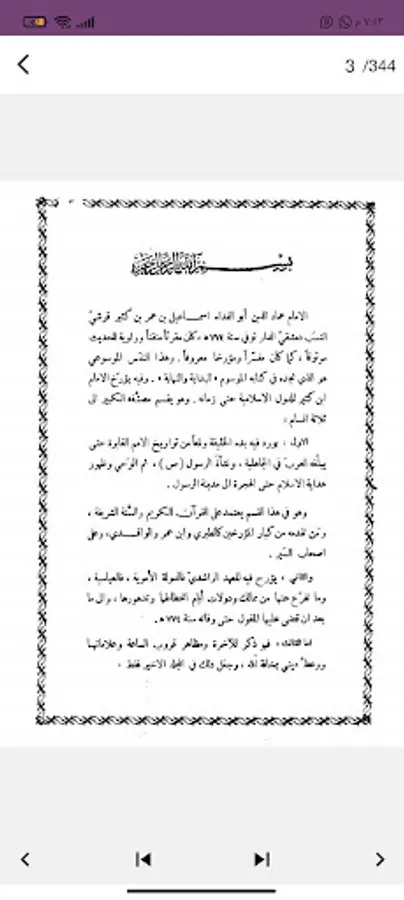 ٧:٥٣ م
3 /344
بسم الله الرحمن الرحيم
الامام عماد الدين أبو الفداء اسماعيل بن عمر بن كثير قرشيّ
النسب دمشقيّ الدار توفي سنة ٧٧٤ هـ ، كان مقرئاً متقناً وراوية للحديث
موثوقاً ، كما كان مفسّراً ومؤرخاً معروفاً . وهذا النفس الموسوعي
هو الذي نجده في كتابه الموسوم « البداية والنهاية » . وفيه يؤرّخ الامام
ابن كثير للدول الاسلامية حتى زمانه . وهو يقسم مصنّفه الكبير الى
ثلاثة اقسام :
الاول : يورد فيه بدء الخليقة ولمعاً من تواريخ الامم الغابرة حتى
يبلغه العرب في الجاهلية ، ونشأة الرسول (ص) ، ثم الوحي وظهور
هداية الاسلام حتى الهجرة الى مدينة الرسول .
وهو في هذا القسم يعتمد على القرآن الكريم والسنّة الشريفة ،
ومن تقدمه من كبار المؤرخين كالطبري وابن عمر والواقدي، وعلى
اصحاب السير .
والثاني : يؤرخ فيه للعهد الراشديّ فالدولة الأموية ، فالعباسية ،
وما تفرّع عنها من ممالك ودولات أيام انحطاطها وتدهورها ، والى ما
بعد ان قضى عليها المغول حتى وفاته سنة ٧٧٤ هـ .
اما الثالث : فهو ذكر للآخرة ومظاهر قروب الساعة وعلاماتها
ووعظ ديني بمثابة لله ، وجعل ذلك في المجلد الاخير فقط .